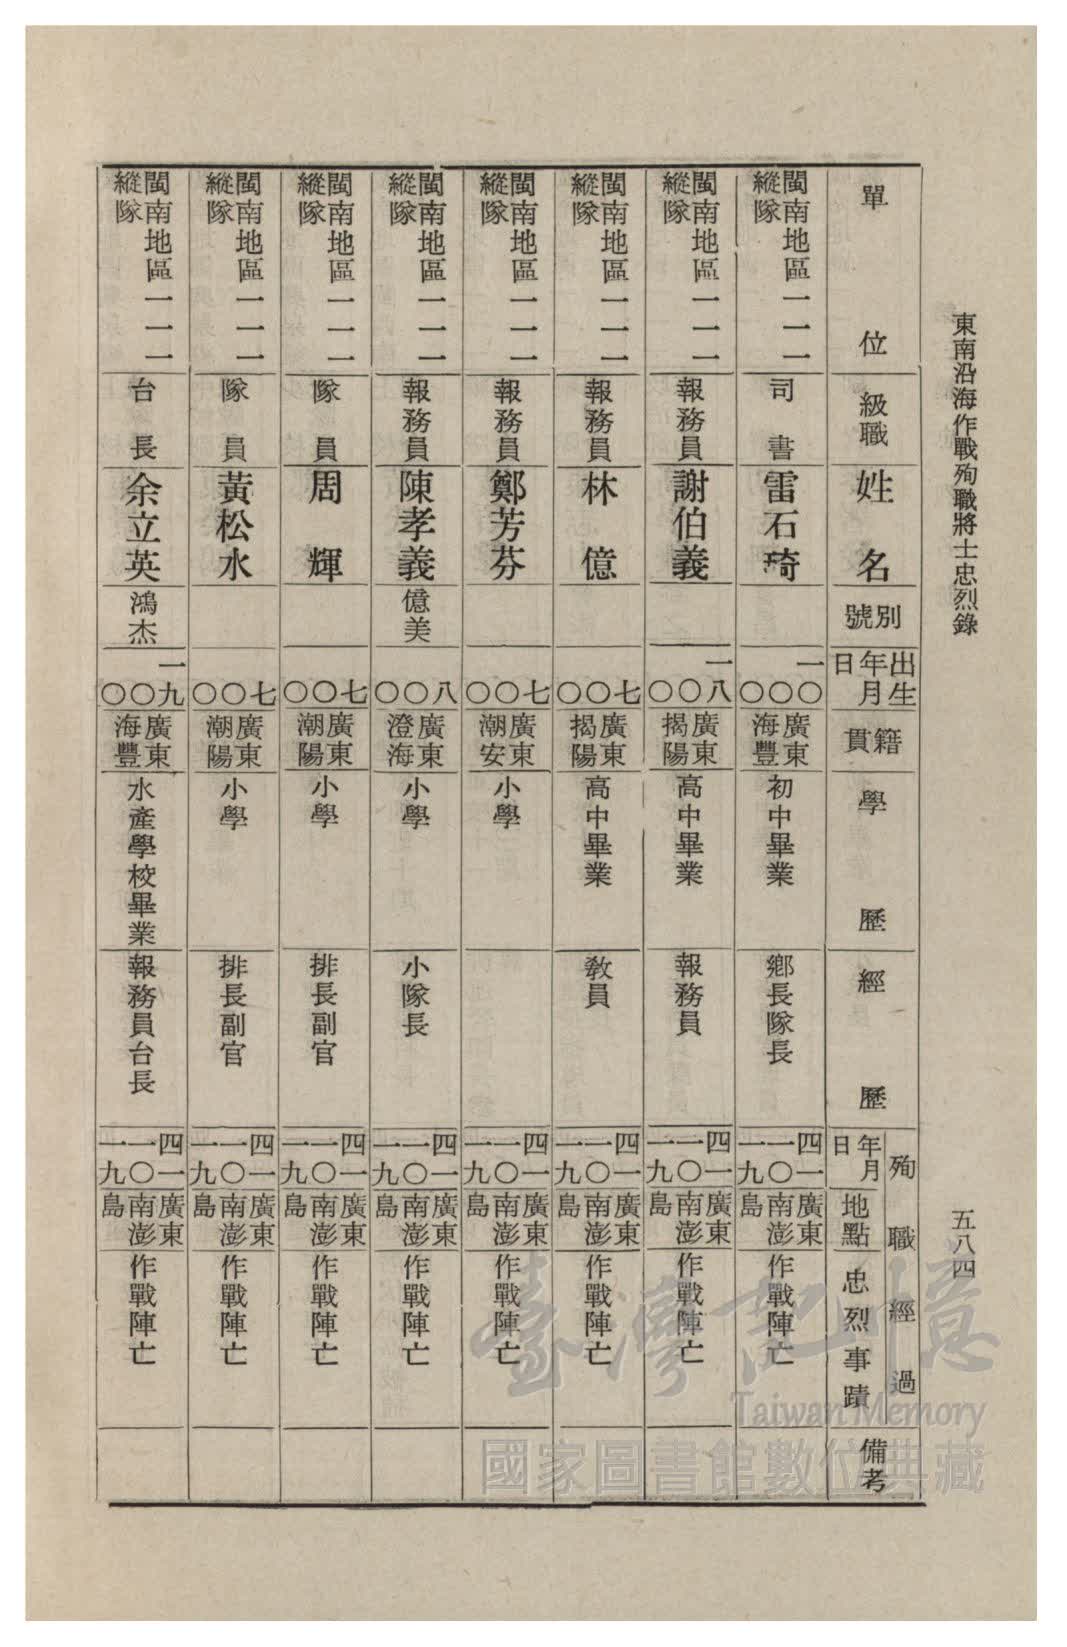 東南沿海作戰殉職將士忠烈錄
五八四
單位
級職
姓名
別號
出生
年月
日
籍貫
學歷
經歷
殉職經過
年月
日
地點
忠烈事蹟
備考
閩南地區一一一
縱隊
司書
雷石琦
一〇
〇
〇
廣東
海豐
初中畢業
鄉長隊長
四一
一〇
一九
廣東
南澎
島
作戰陣亡
閩南地區一一一
縱隊
報務員
謝伯義
一八
〇
〇
廣東
揭陽
高中畢業
報務員
四一
一〇
一九
廣東
南澎
島
作戰陣亡
閩南地區一一一
縱隊
報務員
林億
七
〇
〇
廣東
揭陽
高中畢業
教員
四一
一〇
一九
廣東
南澎
島
作戰陣亡
閩南地區一一一
縱隊
報務員
鄭芳芬
七
〇
〇
廣東
潮安
小學
四一
一〇
一九
廣東
南澎
島
作戰陣亡
閩南地區一一一
縱隊
報務員
陳孝義
億美
八
〇
〇
廣東
澄海
小學
小隊長
四一
一〇
一九
廣東
南澎
島
作戰陣亡
閩南地區一一一
縱隊
隊員
周輝
七
〇
〇
廣東
潮陽
小學
排長副官
四一
一〇
一九
廣東
南澎
島
作戰陣亡
閩南地區一一一
縱隊
隊員
黃松水
七
〇
〇
廣東
潮陽
小學
排長副官
四一
一〇
一九
廣東
南澎
島
作戰陣亡
閩南地區一一一
縱隊
台長
余立英
鴻杰
一九
〇
〇
廣東
海豐
水產學校畢業
報務員台長
四一
一〇
一九
廣東
南澎
島
作戰陣亡
臺灣記憶
Taiwan Memory
國家圖書館數位典藏